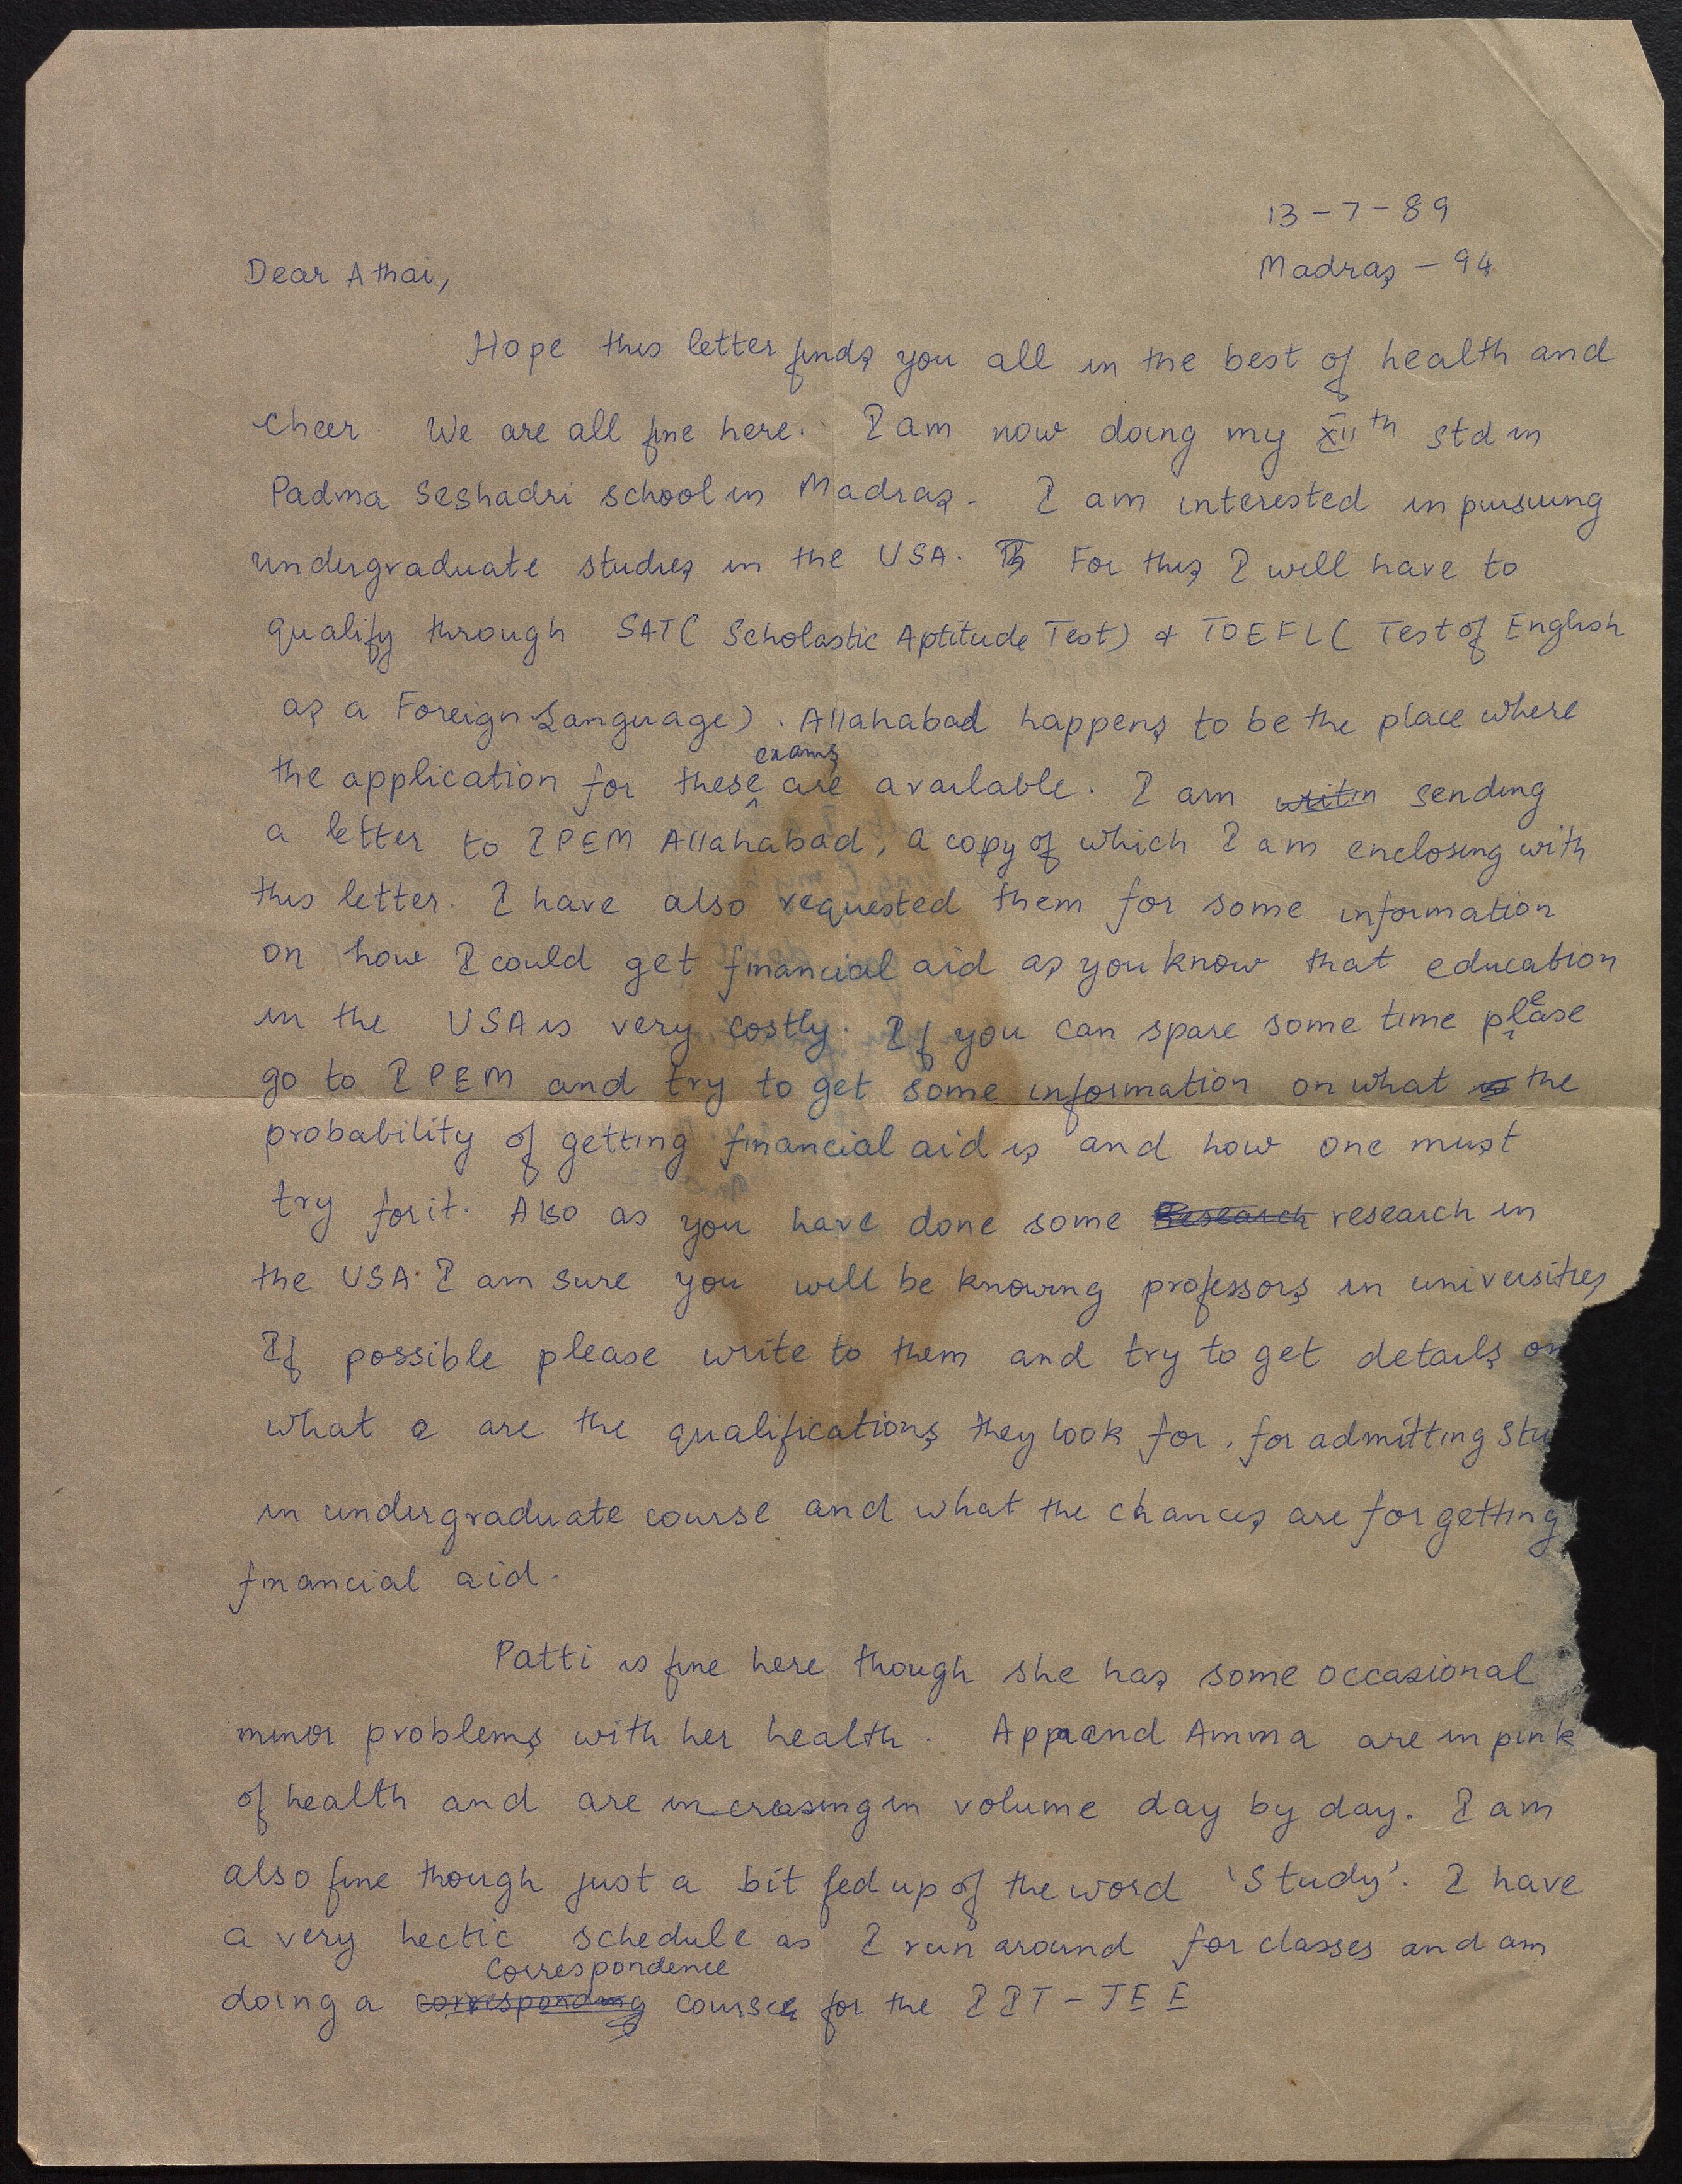 13-7-89
Madras - 94
Dear Athai,
Hope this letter finds you all in the best of health and
cheer. We are all fine here. I am now doing my XIIth std in
Padma Seshadri school in Madras. I am interested in pursuing
undergraduate studies in the USA. For this I will have to
qualify through SAT( Scholastic Aptitude Test) & TOEFL( Test of English
as a Foreign Language). Allahabad happens to be the place where
the application for these exams are available. I am writin sending
a letter to IPEM Allahabad, a copy of which I am enclosing with
this letter. I have also requested them for some information
on how I could get financial aid as you know that education
in the USA is very costly. If you can spare some time please
go to IPEM and try to get some information on what is the
probability of getting financial aid is and how one must
try for it. Also as you have done some Research research in
the USA. I am sure you will be knowing professors in universities
If possible please write to them and try to get details on
what a are the qualifications they look for, for admitting Stu
in undergraduate course and what the chances are for getting
financial aid.
Patti is fine here though she has some occasional
minor problems with her health. Appa and Amma are in pink
of health and are increasing in volume day by day. I am
also fine though just a bit fed up of the word 'Study'. I have
a very hectic schedule as I run around for classes and am
doing a corresponding Correspondence course for the IIT-JEE